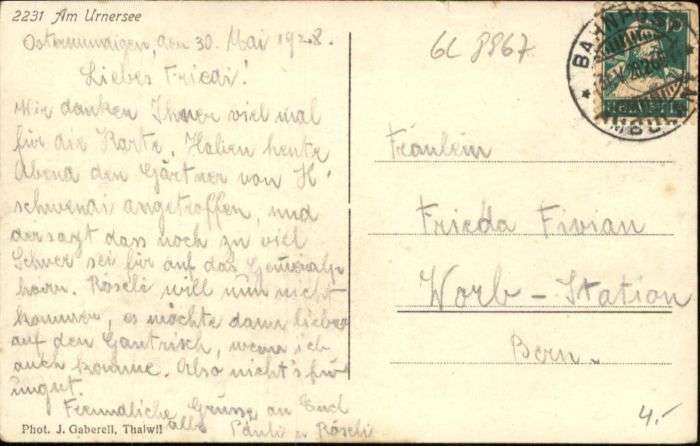 2231 Am Urnersee
Ostermundigen, den 30. Mai 1928.
6L 8867
Liebes Friedi!
Wir danken Ihner viel mal
für die Karte. Haben heute
Abend den Gärtner von H'
schwendi angetroffen, und
der sagt dass noch zu viel
Schnee sei für auf das
horn. Röseli will nun nicht
kommen, es möchte dann lieber
auf den Gantrisch, wenn ich
auch komme. Also nicht's für
ungut.
Freundliche Grüsse an Euch
alle Päuli u Röseli
Phot. J. Gaberell, Thalwil
BAHNPOST
HELVETIA
Fräulein
Frieda Fivian
Worb - Station
Bern.
4.-